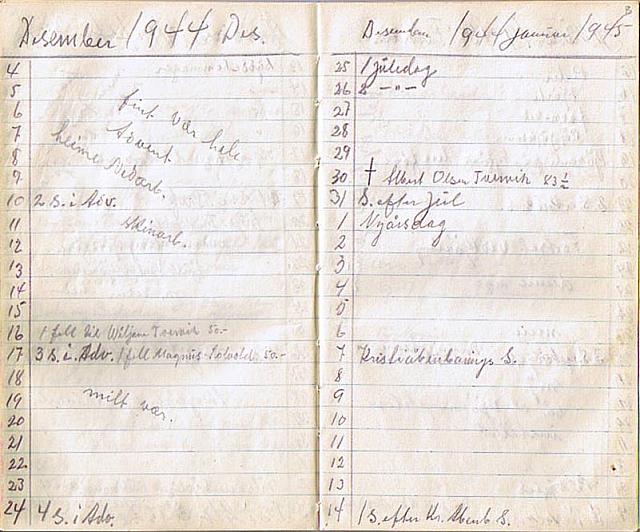 Desember 1944 Des.
4
5
6 fint vær hele
7 Advent
8 heime Vedarb.
9
10 2 S. i Adv.
11 skinarb.
12
13
14
15
16 1 fell til Wiljam Tvervik 50.-
17 3 S. i. Adv. 1 fell Magnus 50.-
18
19 milt vær.
20
21
22
23
24 4 S. i Adv.
Desember 1944 Januar 1945
25 1 juledag
26 2 -"-
27
28
29
30 † Albert Olsen Tvervik 83 ½
31 S. efter Jul
1 Nyårsdag
2
3
4
5
6
7 Kristiåbenbarings S.
8
9
10
11
12
13
14 1 S. efter Kr. Åbenb S.